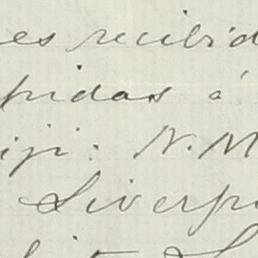 es recibid
pidas á
iji: N. M
Liverp